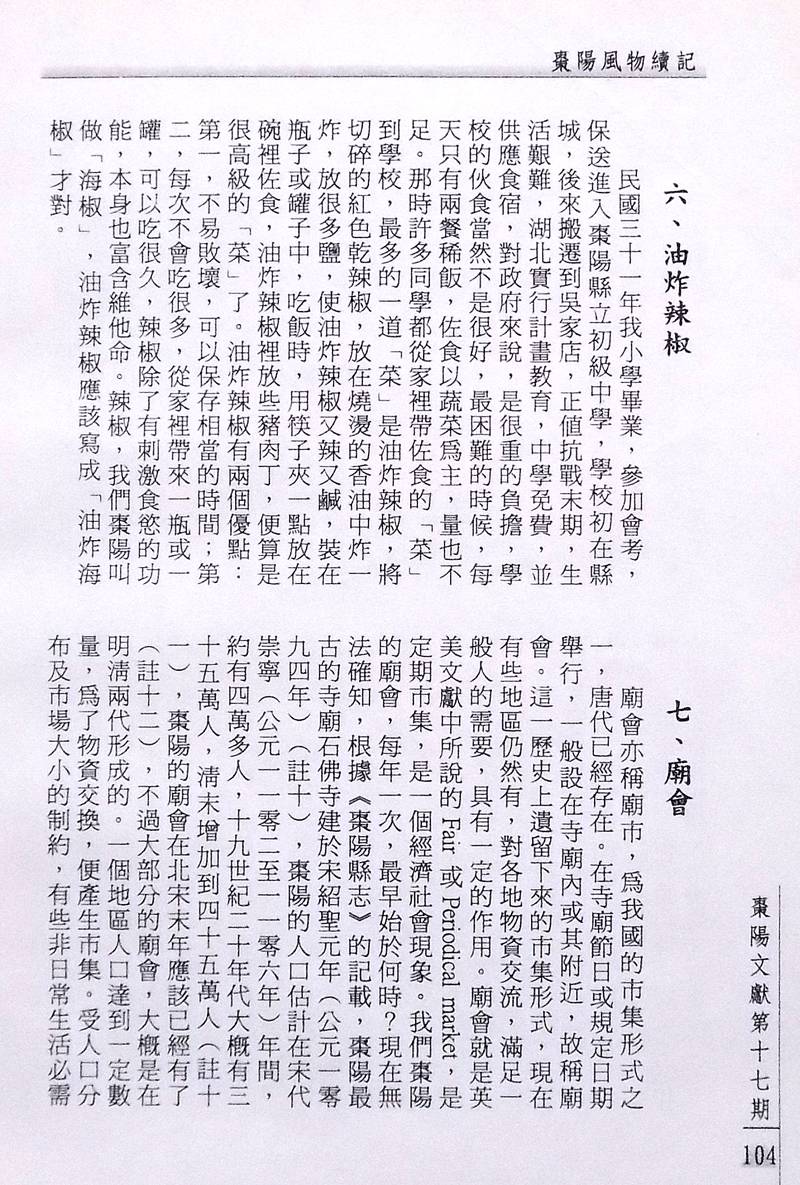 棗陽風物續記
六、油炸辣椒
民國三十一年我小學畢業，參加會考，
保送進入棗陽縣立初級中學，學校初在縣
城，後來搬遷到吳家店，正值抗戰末期，生
活艱難，湖北實行計畫教育，中學免費，並
供應食宿，對政府來說，是很重的負擔，學
校的伙食當然不是很好，最困難的時候，每
天只有兩餐稀飯，佐食以蔬菜爲主，量也不
足。那時許多同學都從家裡帶佐食的「菜」
到學校，最多的一道「菜」是油炸辣椒，將
切碎的紅色乾辣椒，放在燒燙的香油中炸一
炸，放很多鹽，使油炸辣椒又辣又鹹，裝在
瓶子或罐子中，吃飯時，用筷子夾一點放在
碗裡佐食，油炸辣椒裡放些豬肉丁，便算是
很高級的「菜」了。油炸辣椒有兩個優點：
第一，不易敗壞，可以保存相當的時間；第
二，每次不會吃很多，從家裡帶來一瓶或一
罐，可以吃很久，辣椒除了有刺激食慾的功
能，本身也富含維他命。辣椒，我們棗陽叫
做「海椒」，油炸辣椒應該寫成「油炸海
椒」才對。
七、廟會
廟會亦稱廟市，爲我國的市集形式之
一，唐代已經存在。在寺廟節日或規定日期
舉行，一般設在寺廟內或其附近，故稱廟
會。這一歷史上遺留下來的市集形式，現在
有些地區仍然有，對各地物資交流，滿足一
般人的需要，具有一定的作用。廟會就是英
美文獻中所說的 Fair 或 Periodical market，是
定期市集，是一個經濟社會現象。我們棗陽
的廟會，每年一次，最早始於何時？現在無
法確知，根據《棗陽縣志》的記載，棗陽最
古的寺廟石佛寺建於宋紹聖元年（公元一零
九四年）（註十），棗陽的人口估計在宋代
崇寧（公元一一零二至一一零六年）年間，
約有四萬多人，十九世紀二十年代大概有三
十五萬人，清末增加到四十五萬人（註十
一），棗陽的廟會在北宋末年應該已經有了
（註十二），不過大部分的廟會，大概是在
明清兩代形成的。一個地區人口達到一定數
量，爲了物資交換，便產生市集。受人口分
布及市場大小的制約，有些非日常生活必需
棗陽文獻第十七期
104